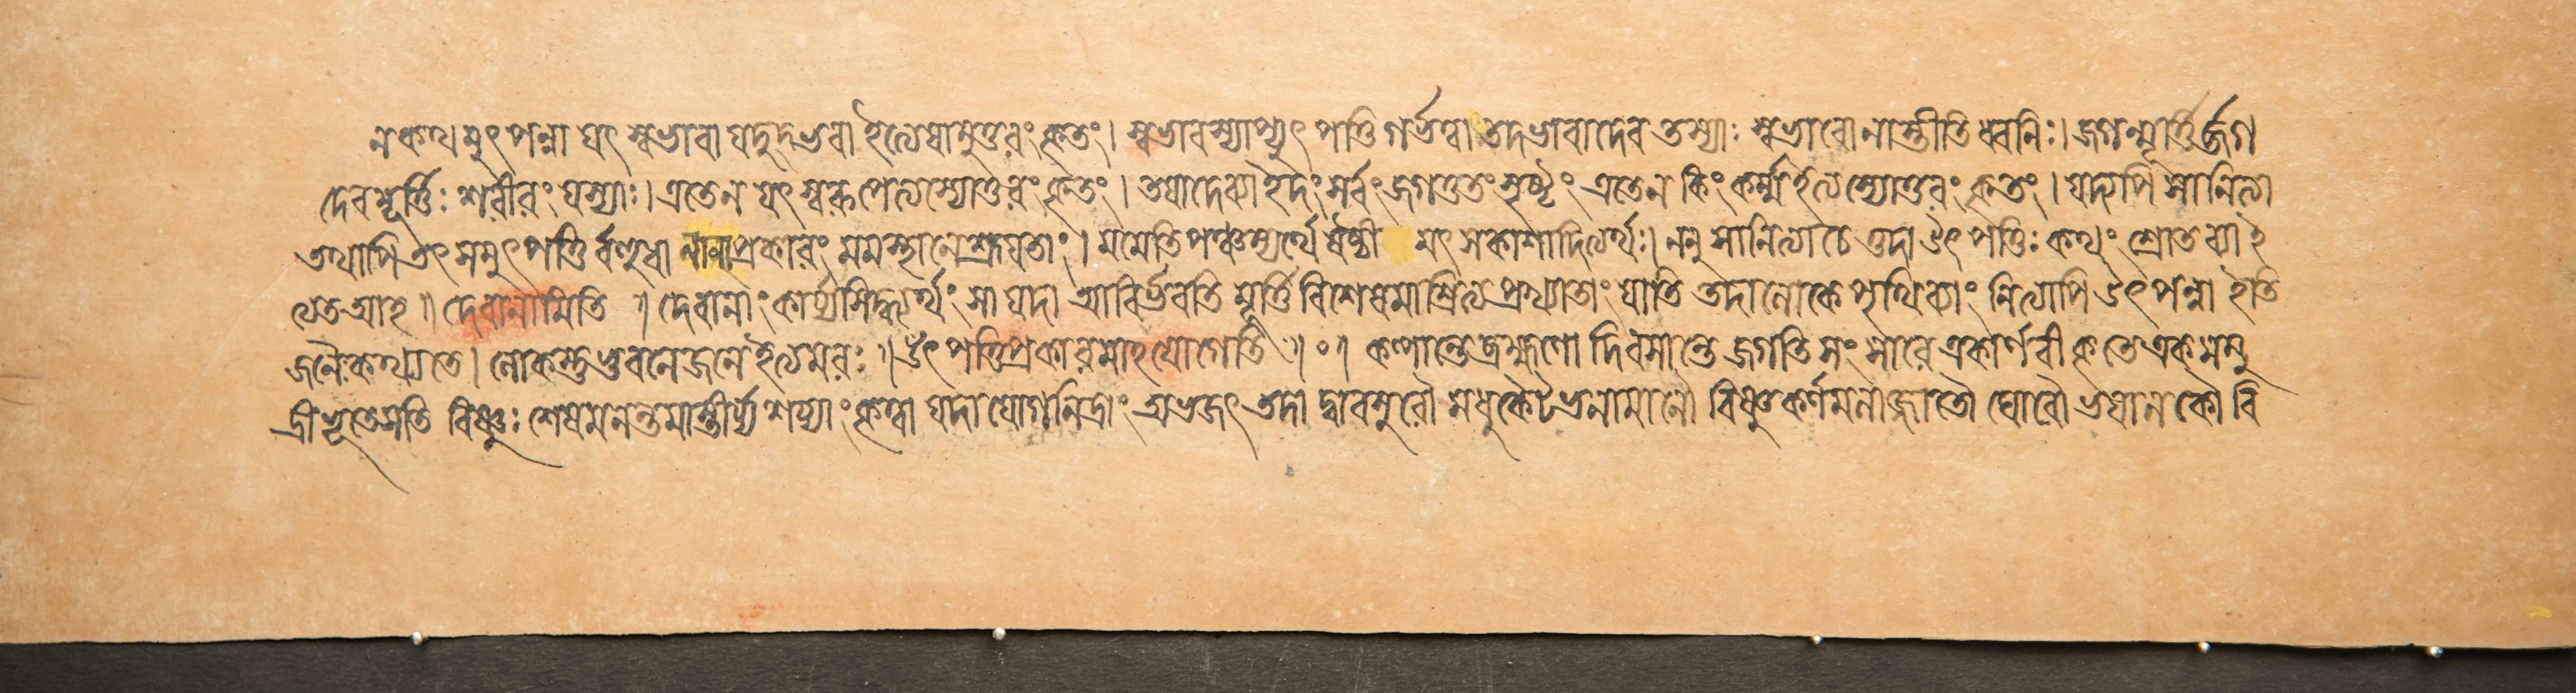 নকথমুৎপন্না যৎ স্বভাবা যদুদ্ভবা ইত্যেষামুত্তরং কৃতং। স্বভাবস্যাপ্যুৎপত্তি গর্ভত্বা তদভাবাদেব তস্যাঃ স্বভাবো নাস্তীতি ধ্বনিঃ। জগন্মূর্ত্তির্জ্জগ
দেবমূর্ত্তিঃ শরীরং যস্যাঃ। এতেন যৎ স্বরূপেত্যস্যোত্তরং কৃতং। তয়াদেব্যা ইদং সর্ব্বং জগত্ততং সৃষ্টং এতেন কিং কর্ম্মা ইত্যস্যোত্তরং কৃতং। যদ্যপি সা নিত্যা
তথাপি তৎ সমুৎপত্তি র্বহুধা নানাপ্রকারং মমস্থানে শ্রূয়তাং। মমেতি পঞ্চম্যর্থে ষষ্ঠী মৎ সকাশাদিত্যর্থঃ। ননু সা নিত্যা চে ত্তদা উৎপত্তিঃ কথং শ্রোতব্যা ই
ত্যত আহ॥ দেবানামিতি ॥ দেবানাং কার্য্যসিদ্ধ্যর্থং সা যদা আবির্ভবতি মূর্ত্তি বিশেষমাশ্রিত্য প্রখ্যাতাং যাতি তদা লোকে পৃথিব্যাং নিত্যাপি উৎপন্না ইতি
জনৈঃ কথ্যতে। লোকস্তু ভুবনে জনে ইত্যমরঃ॥ উৎপত্তিপ্রকারমাহ যোগেতি॥০॥ কল্পান্তে ব্রহ্মণো দিবসান্তে জগতি সংসারে একার্ণবীকৃতে একসমু
দ্রীভূতে সতি বিষ্ণুঃ শেষমনন্তমাস্তীর্য্য শয্যাং কৃত্বা যদা যোগনিদ্রাং অভজৎ তদা দ্বাবসুরৌ মধুকৈটভনামানৌ বিষ্ণুকর্ণমলাজ্জাতৌ ঘোরৌ ভয়ানকৌ বি